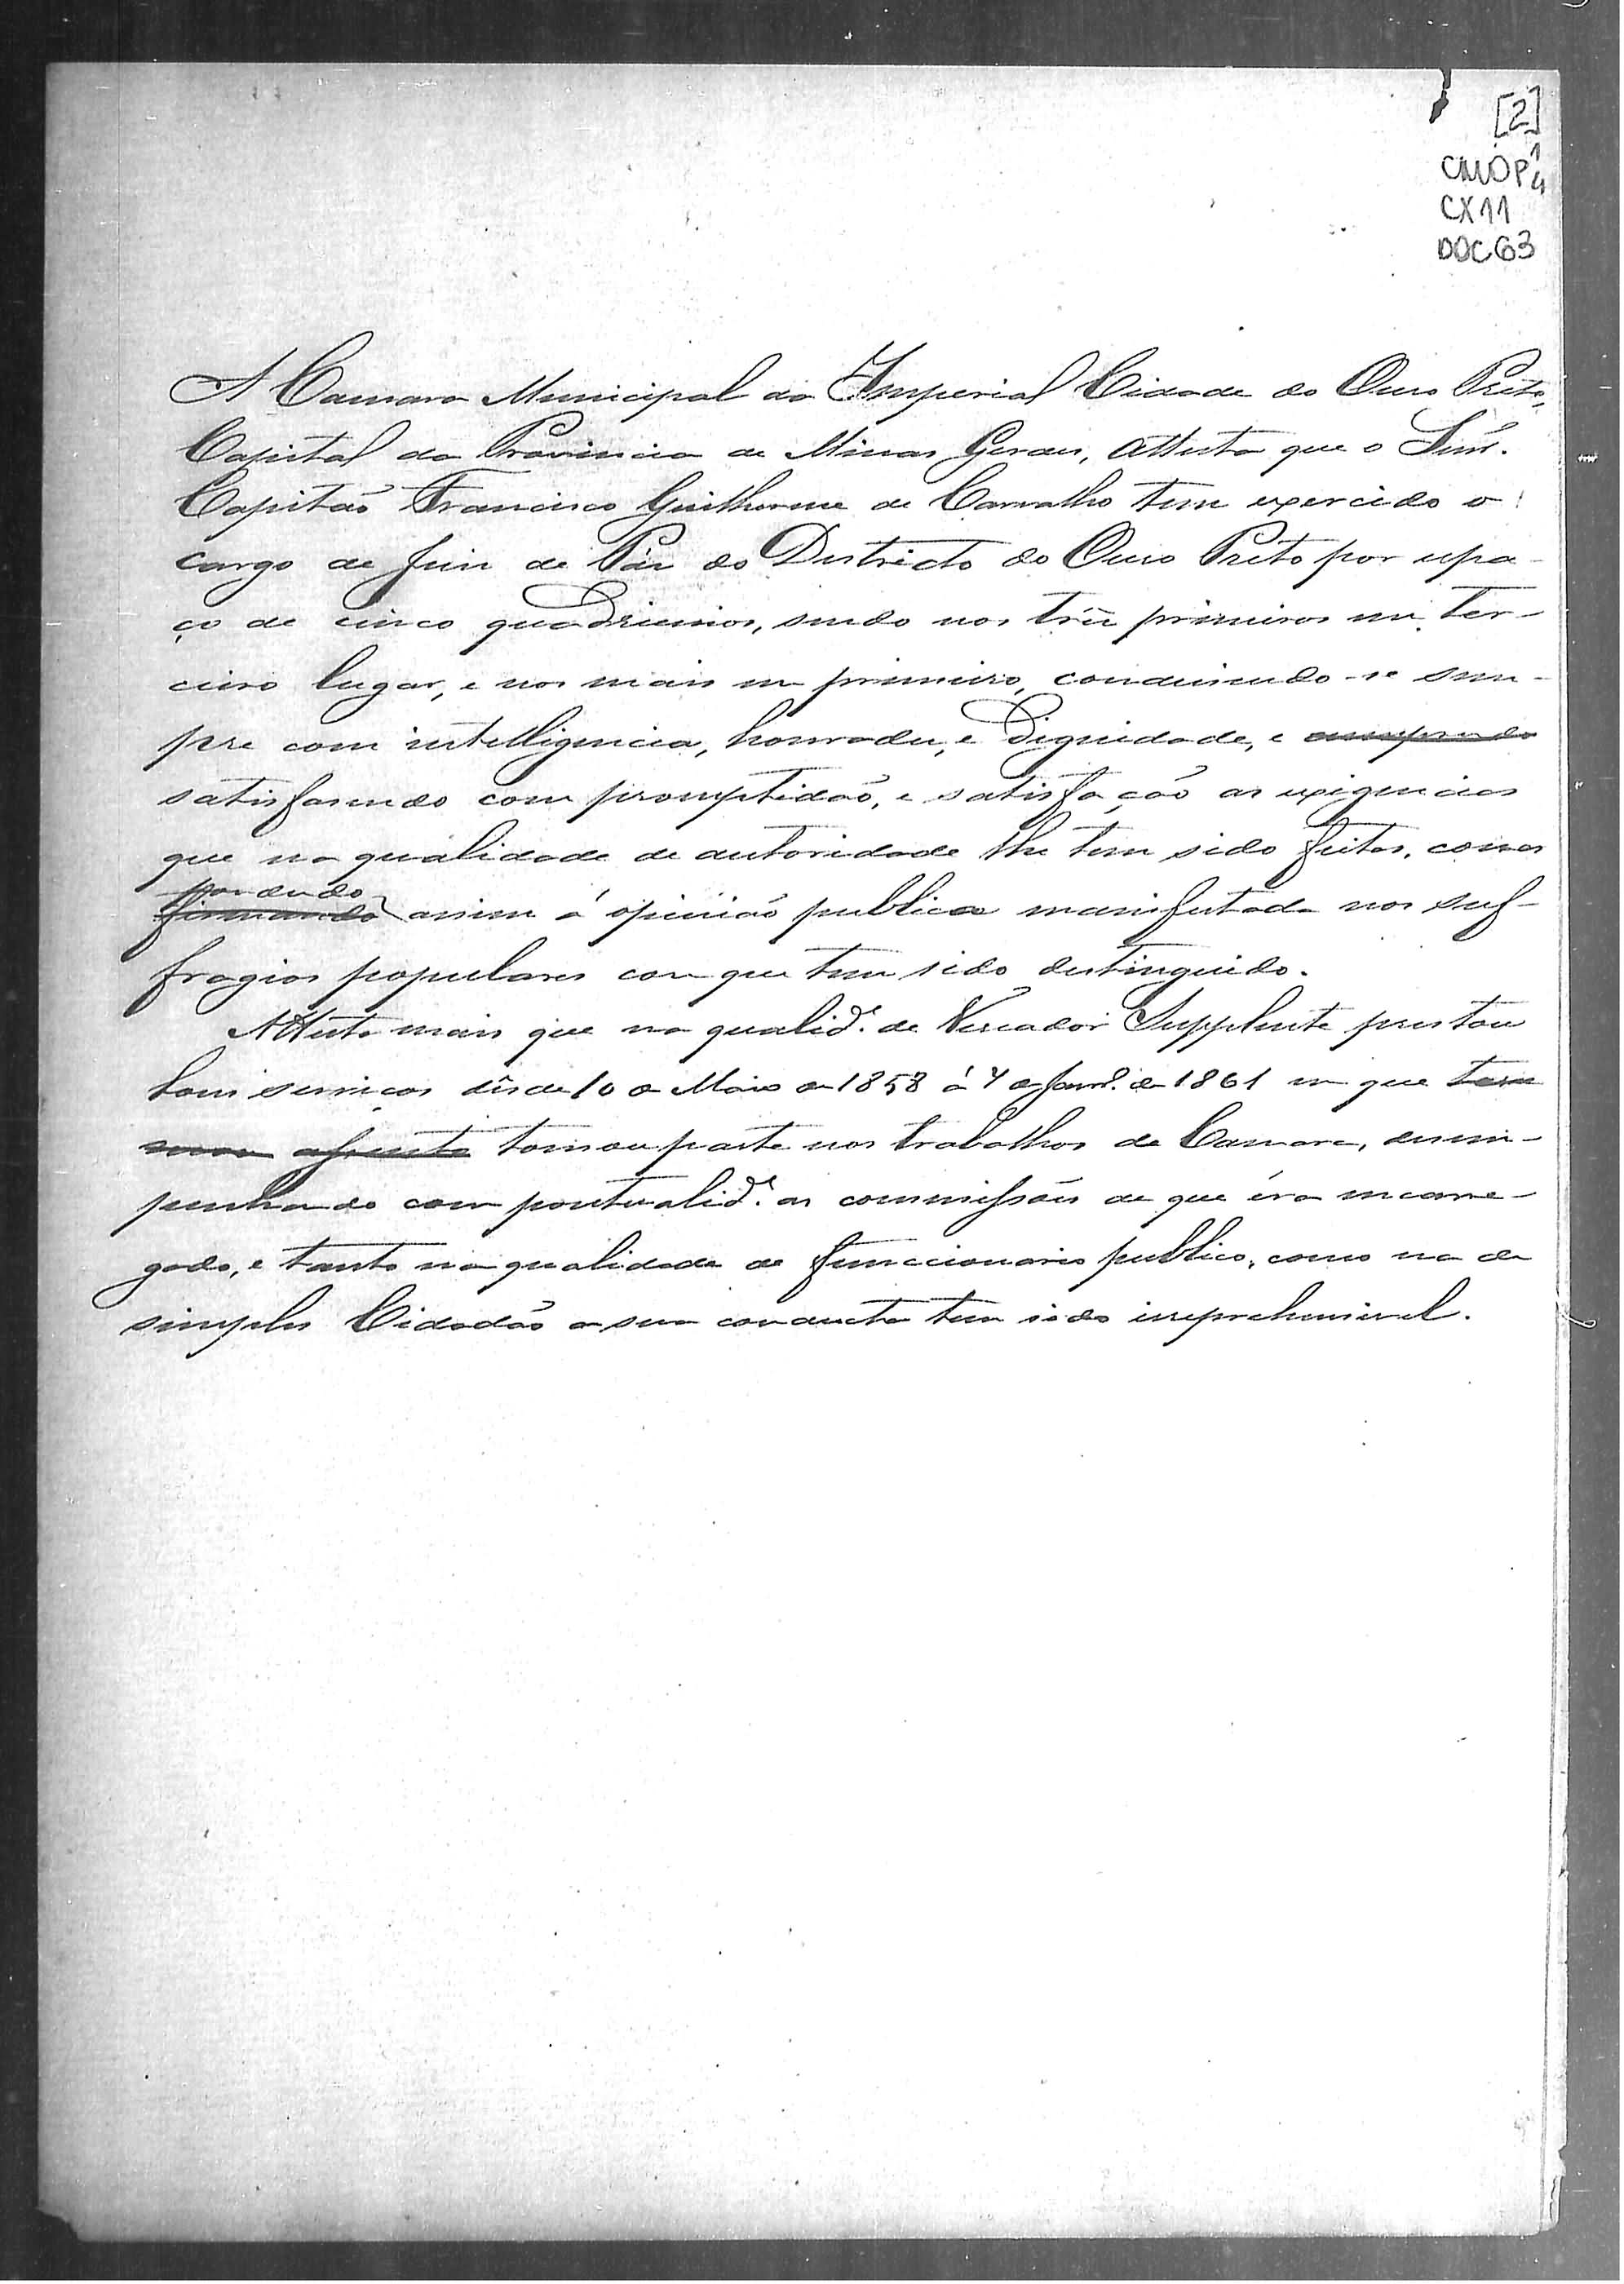 [2]
CMOP 1/4
CX11
DOC63
A Camara Municipal da Imperial Cidade do Ouro Preto,
Capital da Provincia de Minas Geraes, attesta que o Snr.
Capitão Francisco Guilherme de Carvalho tem exercido o
cargo de Juiz de Páz do Districto do Ouro Preto por espa-
ço de cinco quadrienios, sendo nos três primeiros em ter-
ceiro lugar, e nos mais em primeiro, conduzindo-se sem-
pre com intelligencia, honradez, e Dignidade, e cumprindo
satisfasendo com promptidão, e satisfação as exigencias
que na qualidade de autoridade lhe tem sido feitas, corres
pondendo
firmando assim á opinião publica manifestada nos suf-
fragios populares com que tem sido destinguido.
Attesta mais que na qualid.e de Vereador Supplente prestou
bons serviços dêsde 10 de Maio de 1858 á 7 de Janr.o de 1861 em que tem
tomou parte nos trabalhos da Camara, desem-
penhando com pontualid.e as commissões de que éra encarre-
gado, e tanto na qualidade de funccionario publico, como na de
simples Cidadão a sua conducta tem sido irreprehensivel.